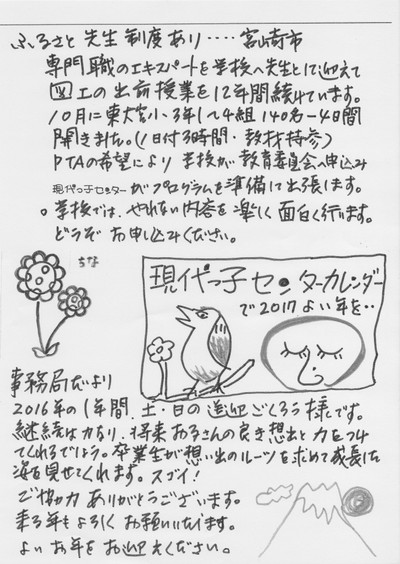 ふるさと先生制度あり‥‥宮崎市
専門職のエキスパートを学校へ先生として迎えて
図工の出前授業を12年間続けています。
10月に東大宮小・3年1〜4組 140名−4日間
開きました。(1日付3時間・教材持参)
PTAの希望により 学校が教育委員会へ申込み
現代っ子センターがプログラムを準備に出張します。
○学校では、やれない内容を楽しく面白く行います。
どうぞ お申し込みください。
ちな
現代っ子センターカレンダー
で2017よい年を‥
事務局だより
2016年の1年間、土・日の送迎ごくろう様です。
継続は力なり、将来お子さんの良き想出と力をつけ
てくれるでしょう。卒業生が想い出のルーツを求めて成長した
姿を見せてくれます。スゴイ!
ご協力ありがとうございます。
来る年もよろしくお願いいたします。
よいお年をお迎えください。